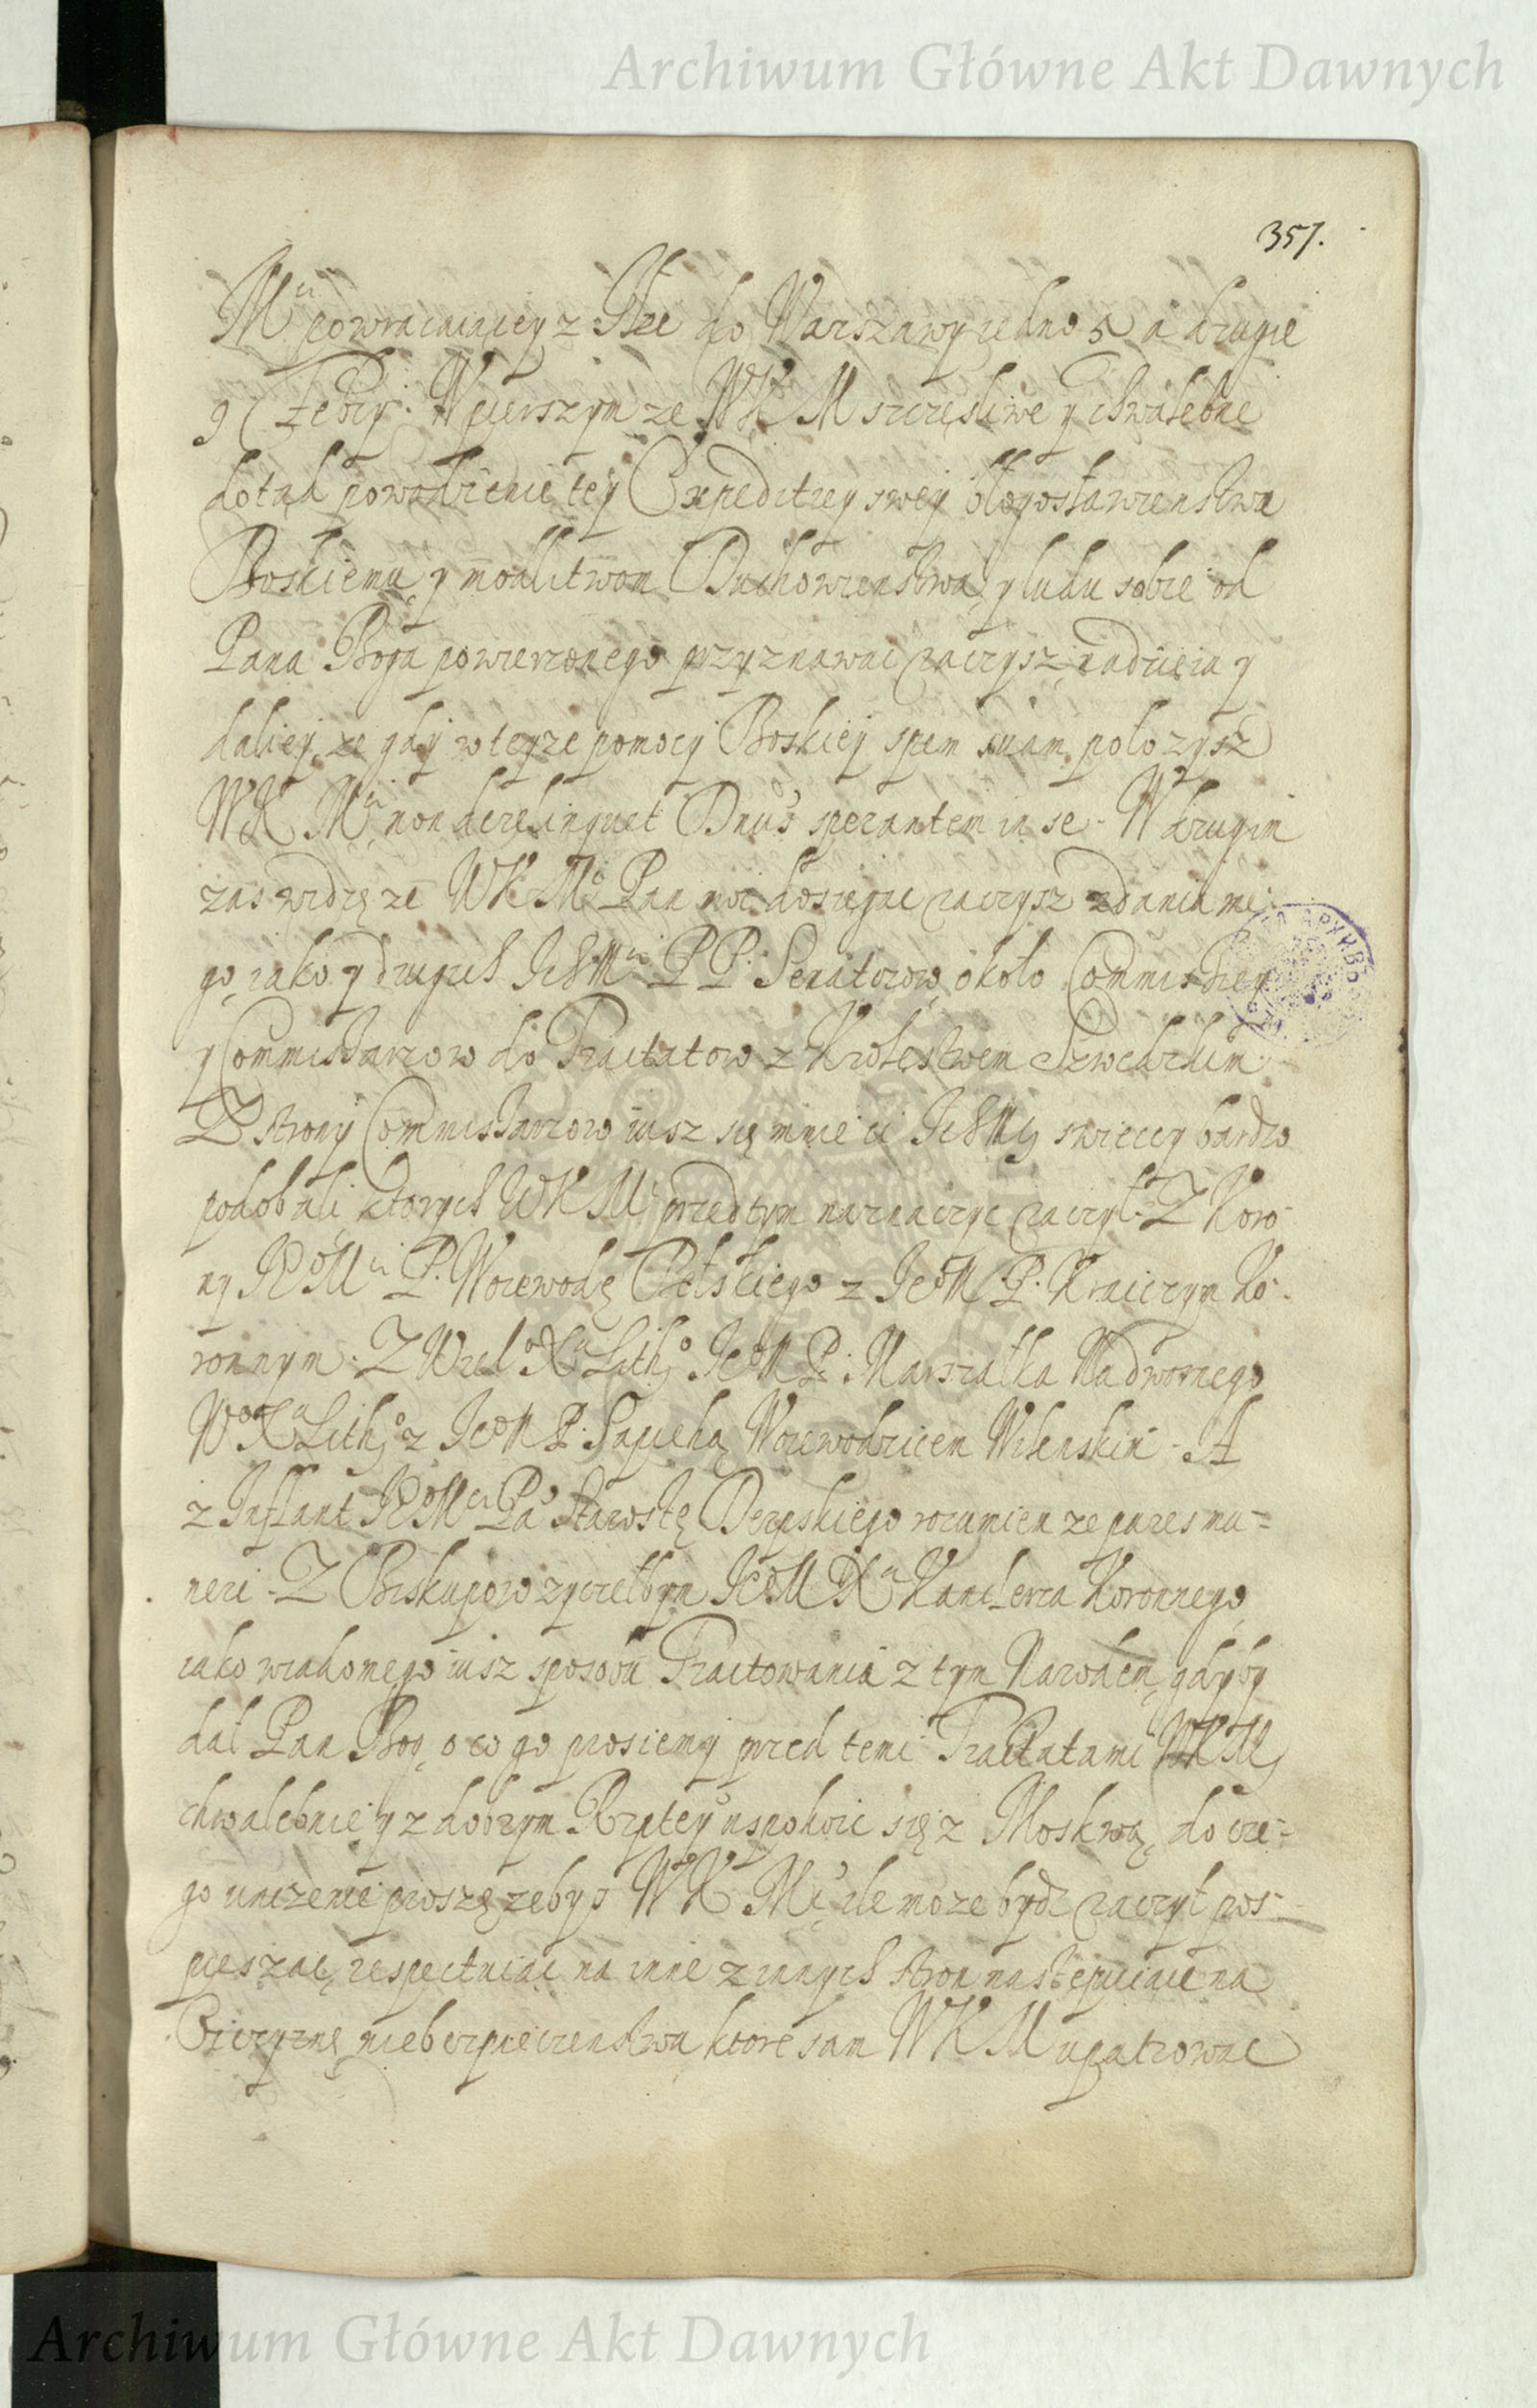 Archiwum Główne Akt Dawnych
357.
Mci powracaiącey z do Warszawy iedno 5 a drugie
9 Febry. W pierszym ze WKM szczęsliwe y chwalebne
dotąd powodzenie tey Expeditiey swey błogosławienstwu
Boskiemu, y modlitwom Duchowienstwa, y ludu sobie od
Pana Boga powierzonego przyznawac raczysz, nadzieia y
daliey, ze gdy w teyze pomocy Boskiey spem suam polozysz
WK Mci non derelinquet Dnus sperantem in se. W drugim
zas widzę ze WKMc Pan moi dosięgac raczysz zdania me-
go, iako y drugich IchMci PP. Senatorow, około Commissiey
y Commissarzow do Tractatow z Krolestwem Szwedzkim.
Z strony Commissarzow iusz się mnie ci IchMc swieccy bardzo
podobali, ktorych WKM przedtym naznaczyc raczył. Z Koro-
ny IeoMci P. Woiewodę Bełskiego z IeoM P. Kraiczym Ko-
ronnym. Z Wiel. Xa Lith. IeoM P. Marszałka Nadwornego
WoXa Litho z IeoM P. Sapiehą Woiewodzicem Wilenskim. A
z Inflant IeoMci Pa Starostę Derpskiego rozumiem ze pares mu-
neri. Z Biskupow zyczełbym IeoM Xa Kanclerza Koronnego,
iako wiadomego iusz sposobu Tractowania z tym Narodem, gdyby
dał Pan Bog, o co go prosiemy przed temi Tractatami WKM,
chwalebnie y z dobrym Rzptey uspokoic się z Moskwą, do cze-
go unizenie proszę zebys WK Mc, ile moze bydz raczył pos-
pieszac, respectuiąc na inne z innych stron następuiące na
Oiczyznę niebezpieczenstwa, ktore sam WKM upatrowac
Archiwum Główne Akt Dawnych